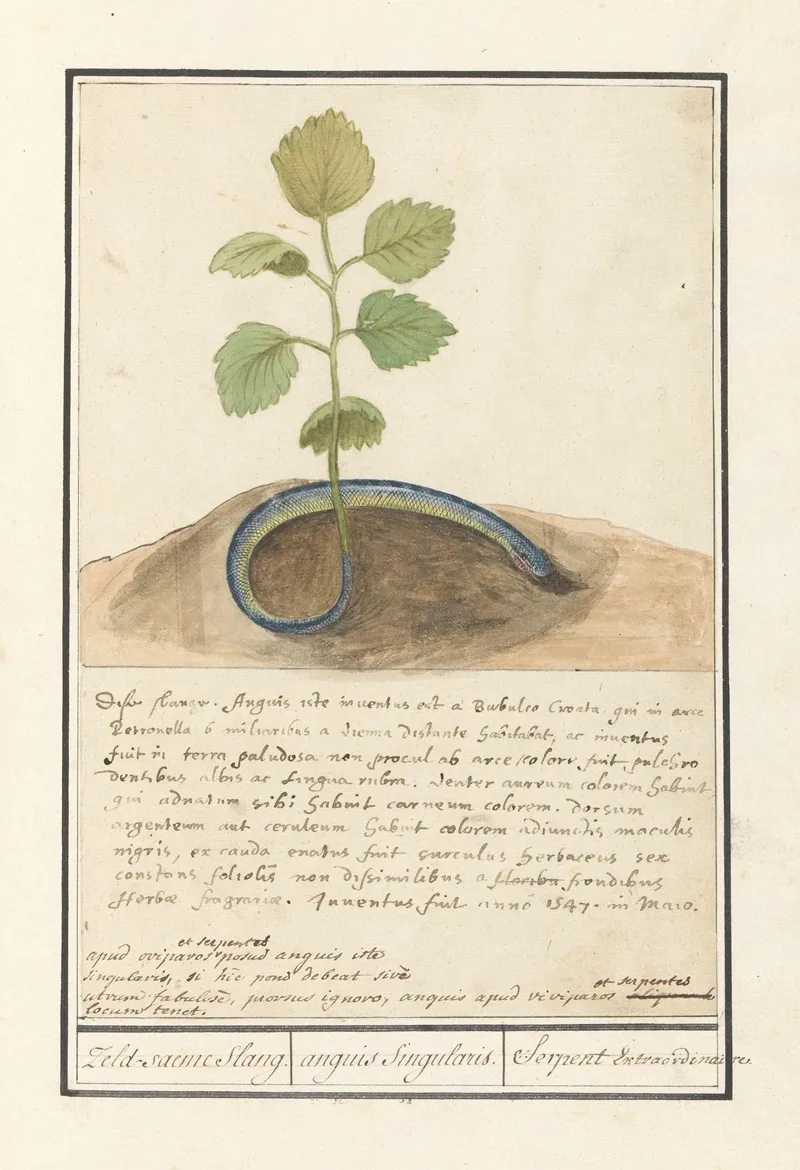 Dese slange. Anguis iste inventus est a Bubulco Croata qui in arce
Petronella 6 miliaribus a Vienna distante habitabat, ac inventus
fuit in terra paludosa non procul ab arce, colore fuit pulchro
dentibus albis ac Lingua rubra. Venter aureum colorem habuit,
qui adnatum sibi habuit carneum colorem. Dorsum
argenteum aut ceruleum habuit colorem adiunctis maculis
nigris, ex cauda enatus fuit surculus herbaceus sex
constans foliolis non dissimilibus a frondibus
Herbæ fragrariæ. Inventus fuit anno 1547. in Maio.
et serpentes
apud oviparos posui anguis iste
singularis, si hic poni debeat sive
et serpentes
utrum fabulose, prorsus ignoro, anguis apud viviparos
locum tenet.
Zeld-saeme Slang. anguis Singularis. Serpent Extraordinaire.